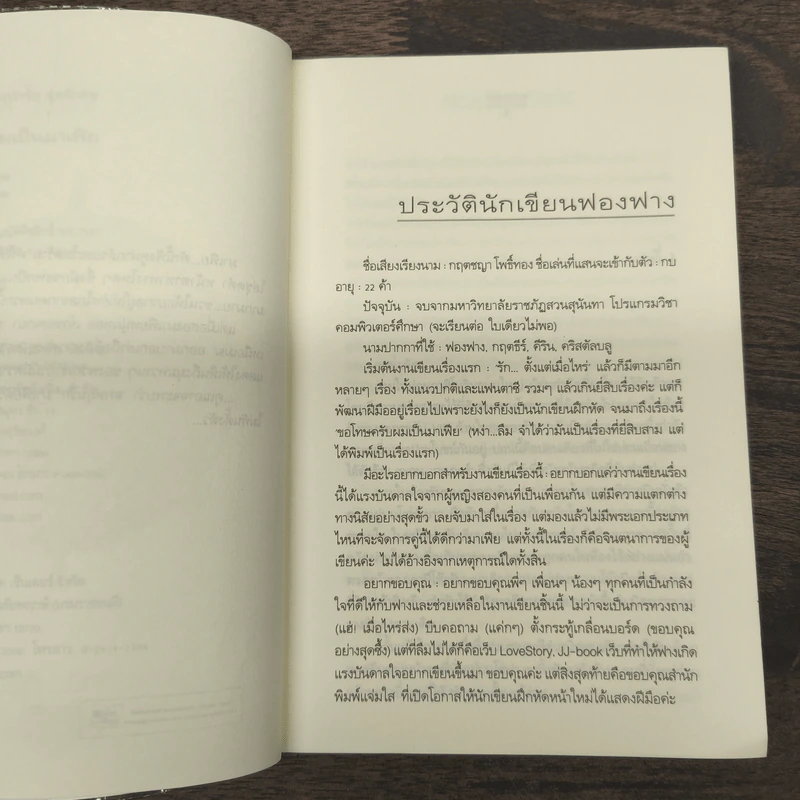 ประวัตินักเขียนฟองฟาง
ชื่อเสียงเรียงนาม : กฤตชญา โพธิ์ทอง ชื่อเล่นที่แสนจะเข้ากับตัว : กบ
อายุ : 22 ค้า
ปัจจุบัน : จบจากมหาวิทยาลัยราชภัฏสวนสุนันทา โปรแกรมวิชา
คอมพิวเตอร์ศึกษา (จะเรียนต่อ ใบเดียวไม่พอ)
นามปากกาที่ใช้ : ฟองฟาง, กฤตธีร์, คีริน, คริสตัลบลู
เริ่มต้นงานเขียนเรื่องแรก : 'รัก... ตั้งแต่เมื่อไหร่' แล้วก็มีตามมาอีก
หลายๆ เรื่อง ทั้งแนวปกติและแฟนตาซี รวมๆ แล้วเกินยี่สิบเรื่องค่ะ แต่ก็
พัฒนาฝีมืออยู่เรื่อยไปเพราะยังไงก็ยังเป็นนักเขียนฝึกหัด จนมาถึงเรื่องนี้
'ขอโทษครับผมเป็นมาเฟีย' (หง่า...ลืม จำได้ว่ามันเป็นเรื่องที่ยี่สิบสาม แต่
ได้พิมพ์เป็นเรื่องแรก)
มีอะไรอยากบอกสำหรับงานเขียนเรื่องนี้ : อยากบอกแค่ว่างานเขียนเรื่อง
นี้ได้แรงบันดาลใจจากผู้หญิงสองคนที่เป็นเพื่อนกัน แต่มีความแตกต่าง
ทางนิสัยอย่างสุดขั้ว เลยจับมาใส่ในเรื่อง แต่มองแล้วไม่มีพระเอกประเภท
ไหนที่จะจัดการคู่นี้ได้ดีกว่ามาเฟีย แต่ทั้งนี้ในเรื่องก็คือจินตนาการของผู้
เขียนค่ะ ไม่ได้อ้างอิงจากเหตุการณ์ใดทั้งสิ้น
อยากขอบคุณ : อยากขอบคุณพี่ๆ เพื่อนๆ น้องๆ ทุกคนที่เป็นกำลัง
ใจที่ดีให้กับฟางและช่วยเหลือในงานเขียนชิ้นนี้ ไม่ว่าจะเป็นการทวงถาม
(แฮ่! เมื่อไหร่ส่ง) บีบคอถาม (แค่กๆ) ตั้งกระทู้เกลื่อนบอร์ด (ขอบคุณ
อย่างสุดซึ้ง) แต่ที่ลืมไม่ได้ก็คือเว็บ LoveStory, JJ-book เว็บที่ทำให้ฟางเกิด
แรงบันดาลใจอยากเขียนขึ้นมา ขอบคุณค่ะ แต่สิ่งสุดท้ายคือขอบคุณสำนัก
พิมพ์แจ่มใส ที่เปิดโอกาสให้นักเขียนฝึกหัดหน้าใหม่ได้แสดงฝีมือค่ะ